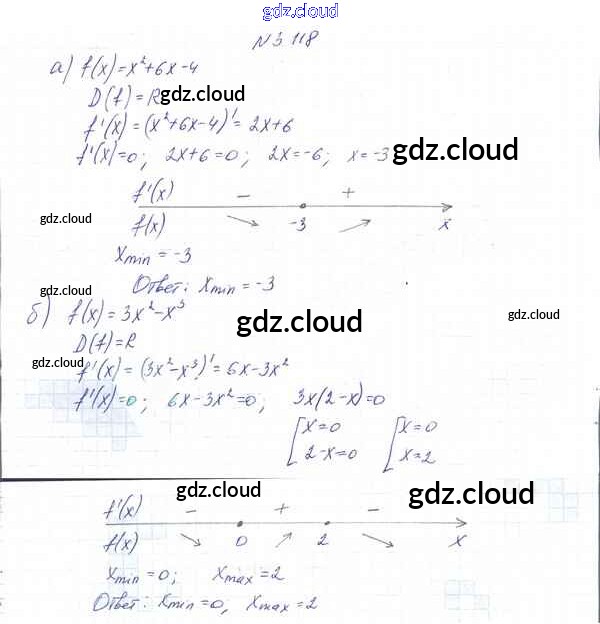 gdz.cloud
N 3 118
а) f(x)=x²+6x-4
D(f)=R gdz.cloud
f'(x)=(x²+6x-4)'=2x+6
f'(x)=0; 2x+6=0; 2x=-6; x=-3 gdz.cloud
f'(x) - +
gdz.cloud
f(x) -3 x
xmin = -3
Ответ: xmin = -3
gdz.cloud
б) f(x)=3x²-x³
gdz.cloud gdz.cloud
D(f)=R
gdz.cloud
f'(x)=(3x²-x³)'=6x-3x²
f'(x)=0; 6x-3x²=0; 3x(2-x)=0
[x=0 [x=0
2-x=0 x=2
gdz.cloud gdz.cloud
f'(x) - + -
f(x) 0 2 x
xmin=0; xmax=2
Ответ: xmin=0, xmax=2